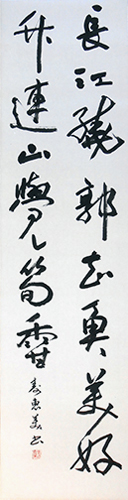 長江繞郭知魚美好
竹連山覺筍香